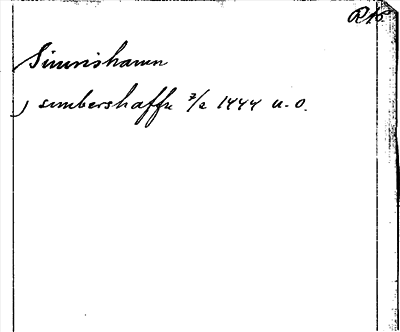 R 15
Simrishamn
) simbershaffn 7/2 1444 u.o.